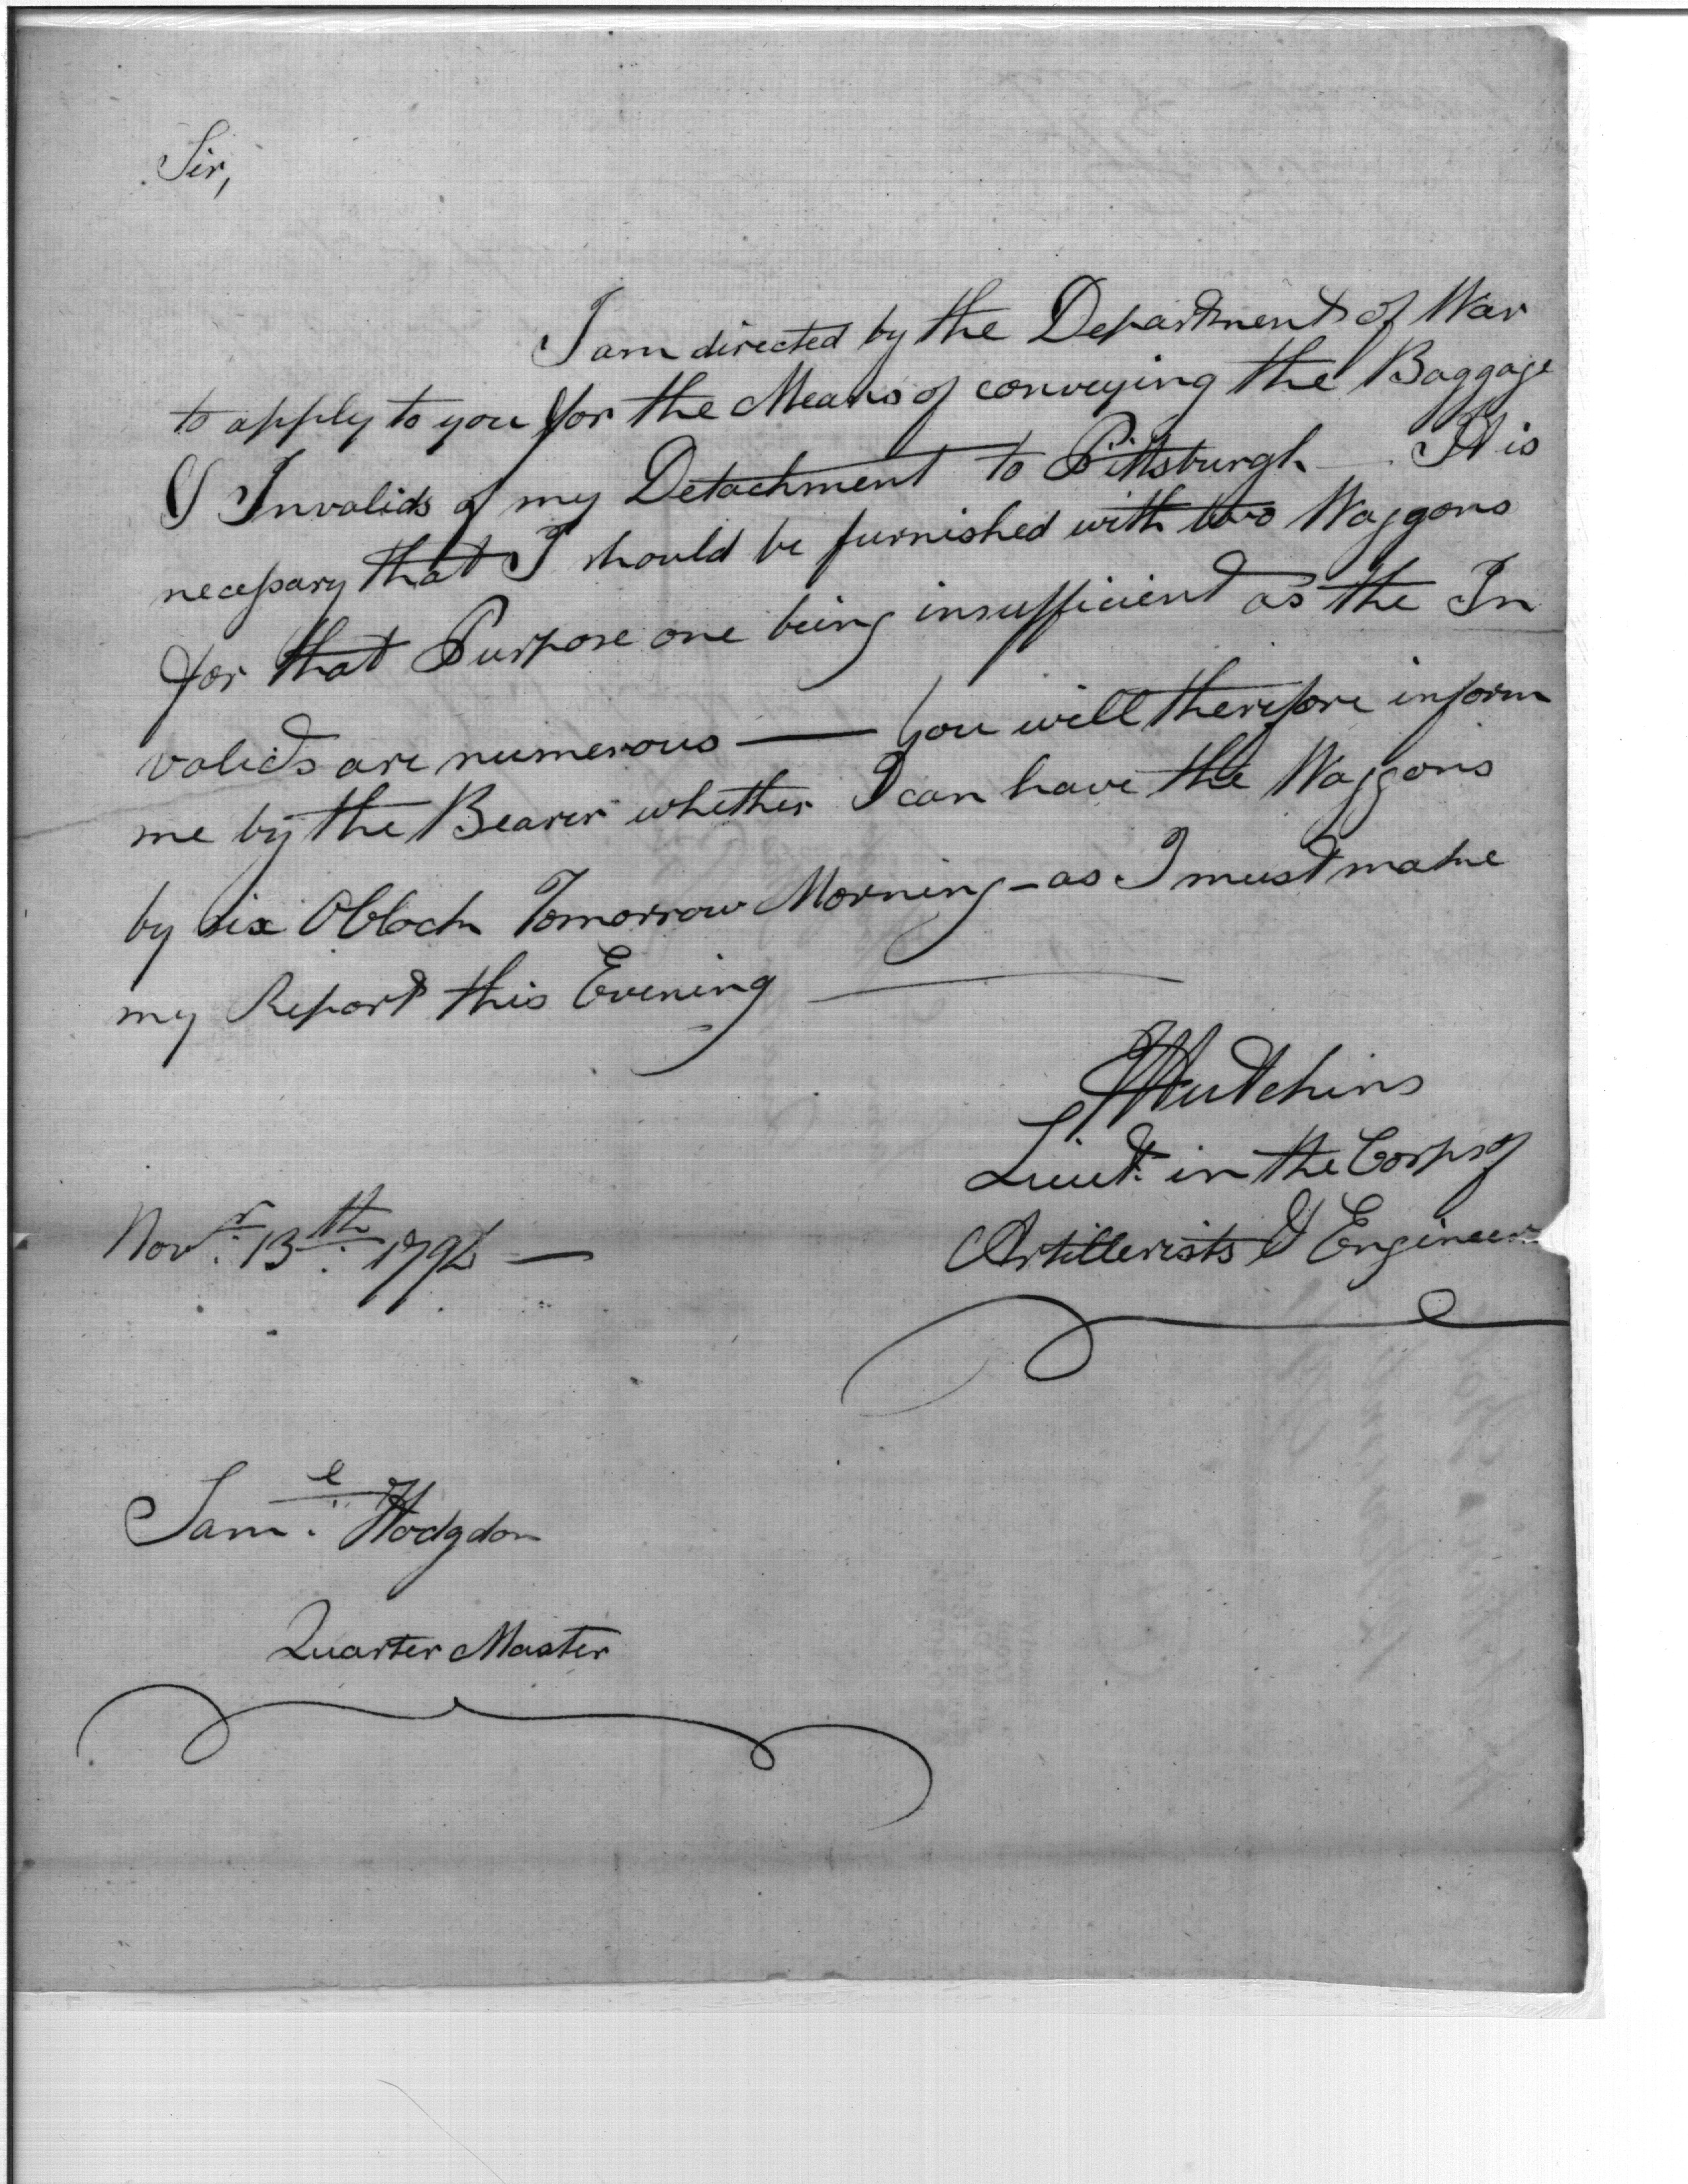 Sir,
I am directed by the Department of War
to apply to you for the Means of conveying the Baggage
& Invalids of my Detachment to Pittsburgh — It is
necessary that I should be furnished with two Waggons
for that Purpose one being insufficient as the In
valids are numerous — You will therefore inform
me by the Bearer whether I can have the Waggons
by six OClock Tomorrow Morning – as I must make
my Report this Evening —
Hutchins
Lieut. in the Corps of
Artillerists & Engineers
Novr. 13th. 1794 —
Saml. Hodgdon
Quarter Master